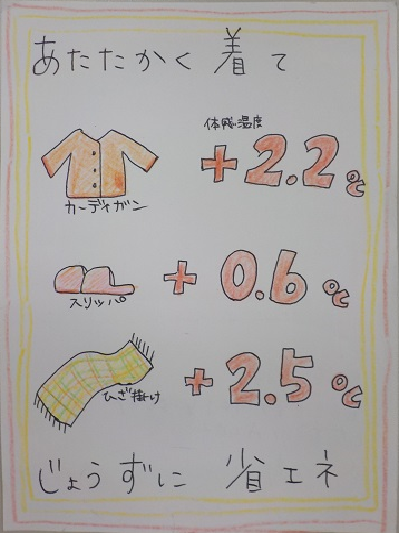 あたたかく 着て
体感温度
+2.2℃
カーディガン
+0.6℃
スリッパ
+2.5℃
ひざ掛け
じょうずに 省エネ